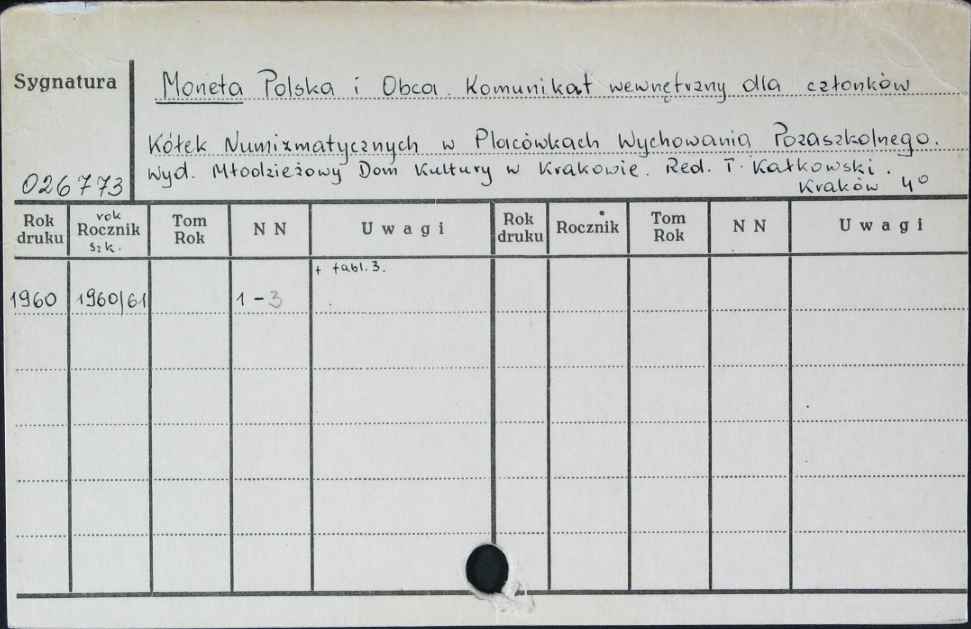 Sygnatura
Moneta Polska i Obca. Komunikat wewnętrzny dla członków
Kółek Numizmatycznych w Placówkach Wychowania Pozaszkolnego.
Wyd. Młodzieżowy Dom Kultury w Krakowie. Red. T. Kałkowski.
026773
Kraków 4°
Rok druku
rok Rocznik szk.
Tom Rok
N N
Uwagi
Rok druku
Rocznik
Tom Rok
N N
Uwagi
+ tabl. 3.
1960 1960/61 1-3